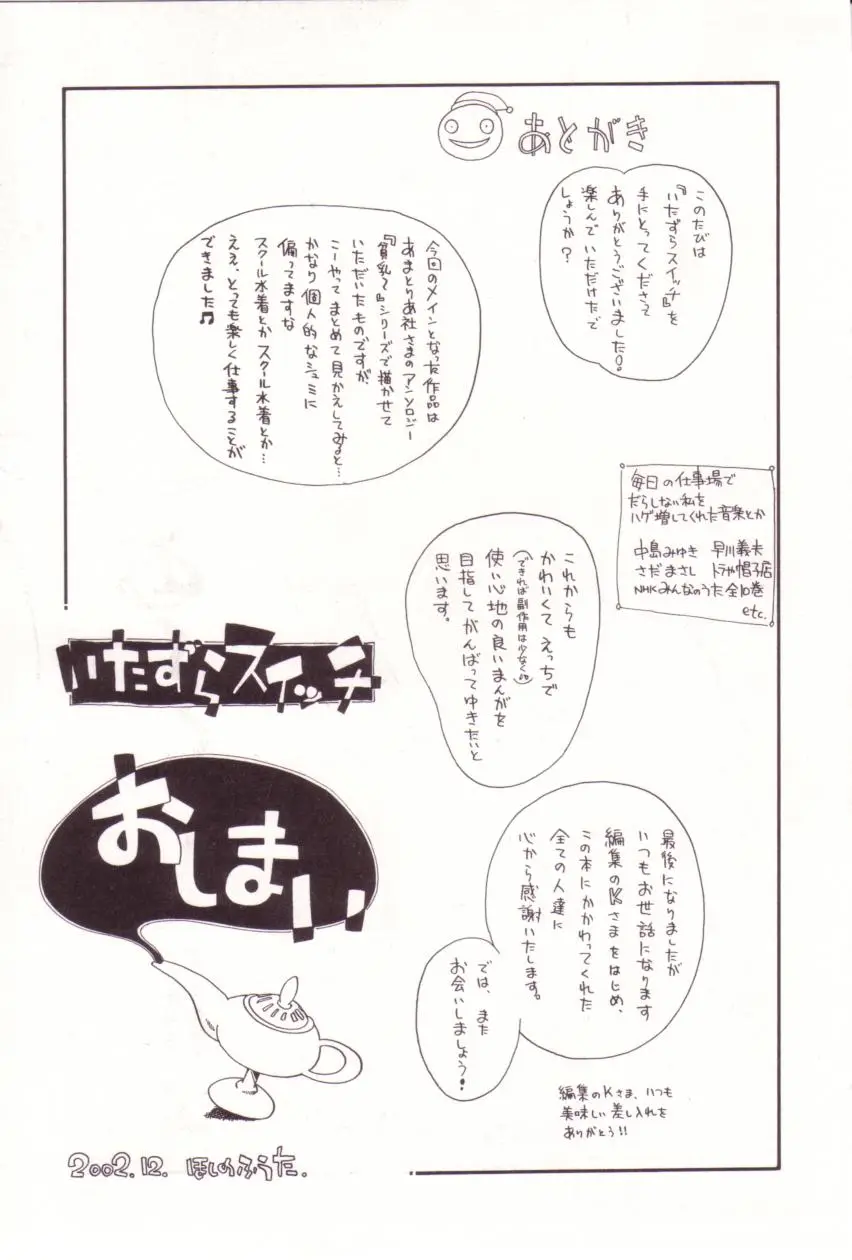 あとがき
このたびは
『いたずらスイッチ』を
手にとってくださって
ありがとうございました。
楽しんでいただけたで
しょうか?
今回のメインとなった作品は
あまとりあ社さまのアンソロジー
『貧乳て』シリーズで描かせて
いただいたものですが、
こーやってまとめて見かえしてみると…
かなり個人的なシュミに
偏ってますな
スクール水着とかスクール水着とか…
ええ、とっても楽しく仕事することが
できました♫
毎日の仕事場で
だらしない私を
ハゲ増してくれた音楽とか
中島みゆき 早川義夫
さだまさし ドラや帽子店
NHKみんなのうた全10巻
etc.
これからも
かわいくてえっちで
(できれば副作用は少なく)
使い心地の良いまんがを
目指してがんばってゆきたいと
思います。
最後になりましたが
いつもお世話になります
編集のKさまをはじめ、
この本にかかわってくれた
全ての人達に
心から感謝いたします。
では、また
お会いしましょう!
編集のKさま、いつも
美味しい差し入れを
ありがとう!!
いたずらスイッチ
おしまい
2002.12. ほしのふうた.